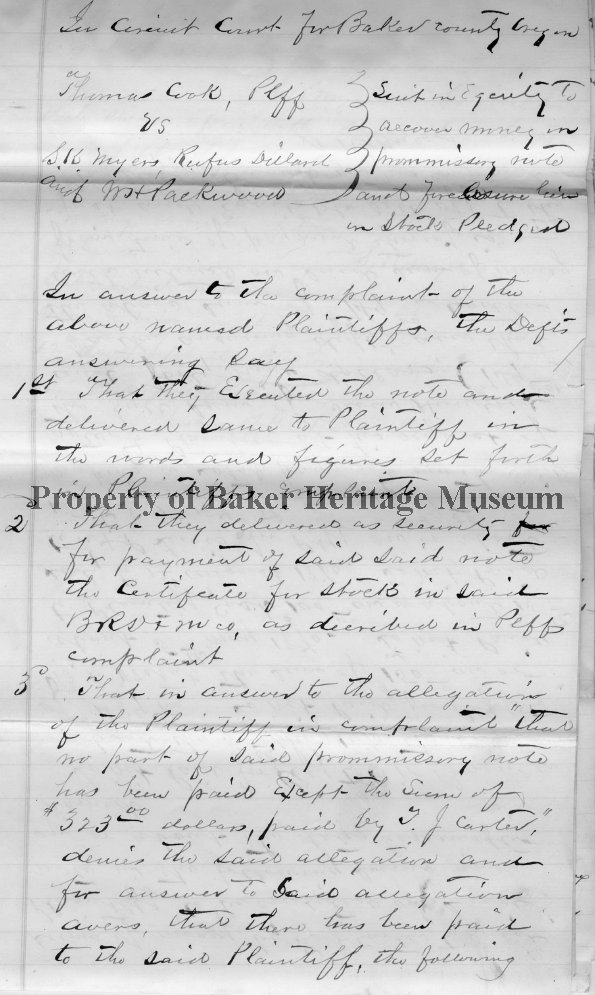 In Circuit Court for Baker county Oregon
Thomas Cook, Plff } Suit in Equity To
vs } recover money on
S.K Myers, Rufus Dillard } prommissory note
and Wm H Packwood } and foreclosure lien
on Stock Pledged
In answer to the complaint of the
above named Plaintiffs, the Defts
answering say
1st That they Executed the note and
delivered same to Plaintiff in
the words and figures set forth
in Plaintiffs complaint
Property of Baker Heritage Museum
2 That they delivered as security for
for payment of said said note
the Certifcate for stock in said
as decribed in Plffs
complaint
3d That in answer to the allegation
of the Plaintiff in complaint "that
no part of said prommissory note
has been paid Except the Sum of
$323.00 dollars, paid by T. J Carter,"
denies the said allegation and
for answer to Said allegation
avers, that there has been paid
to the said Plaintiff, the following